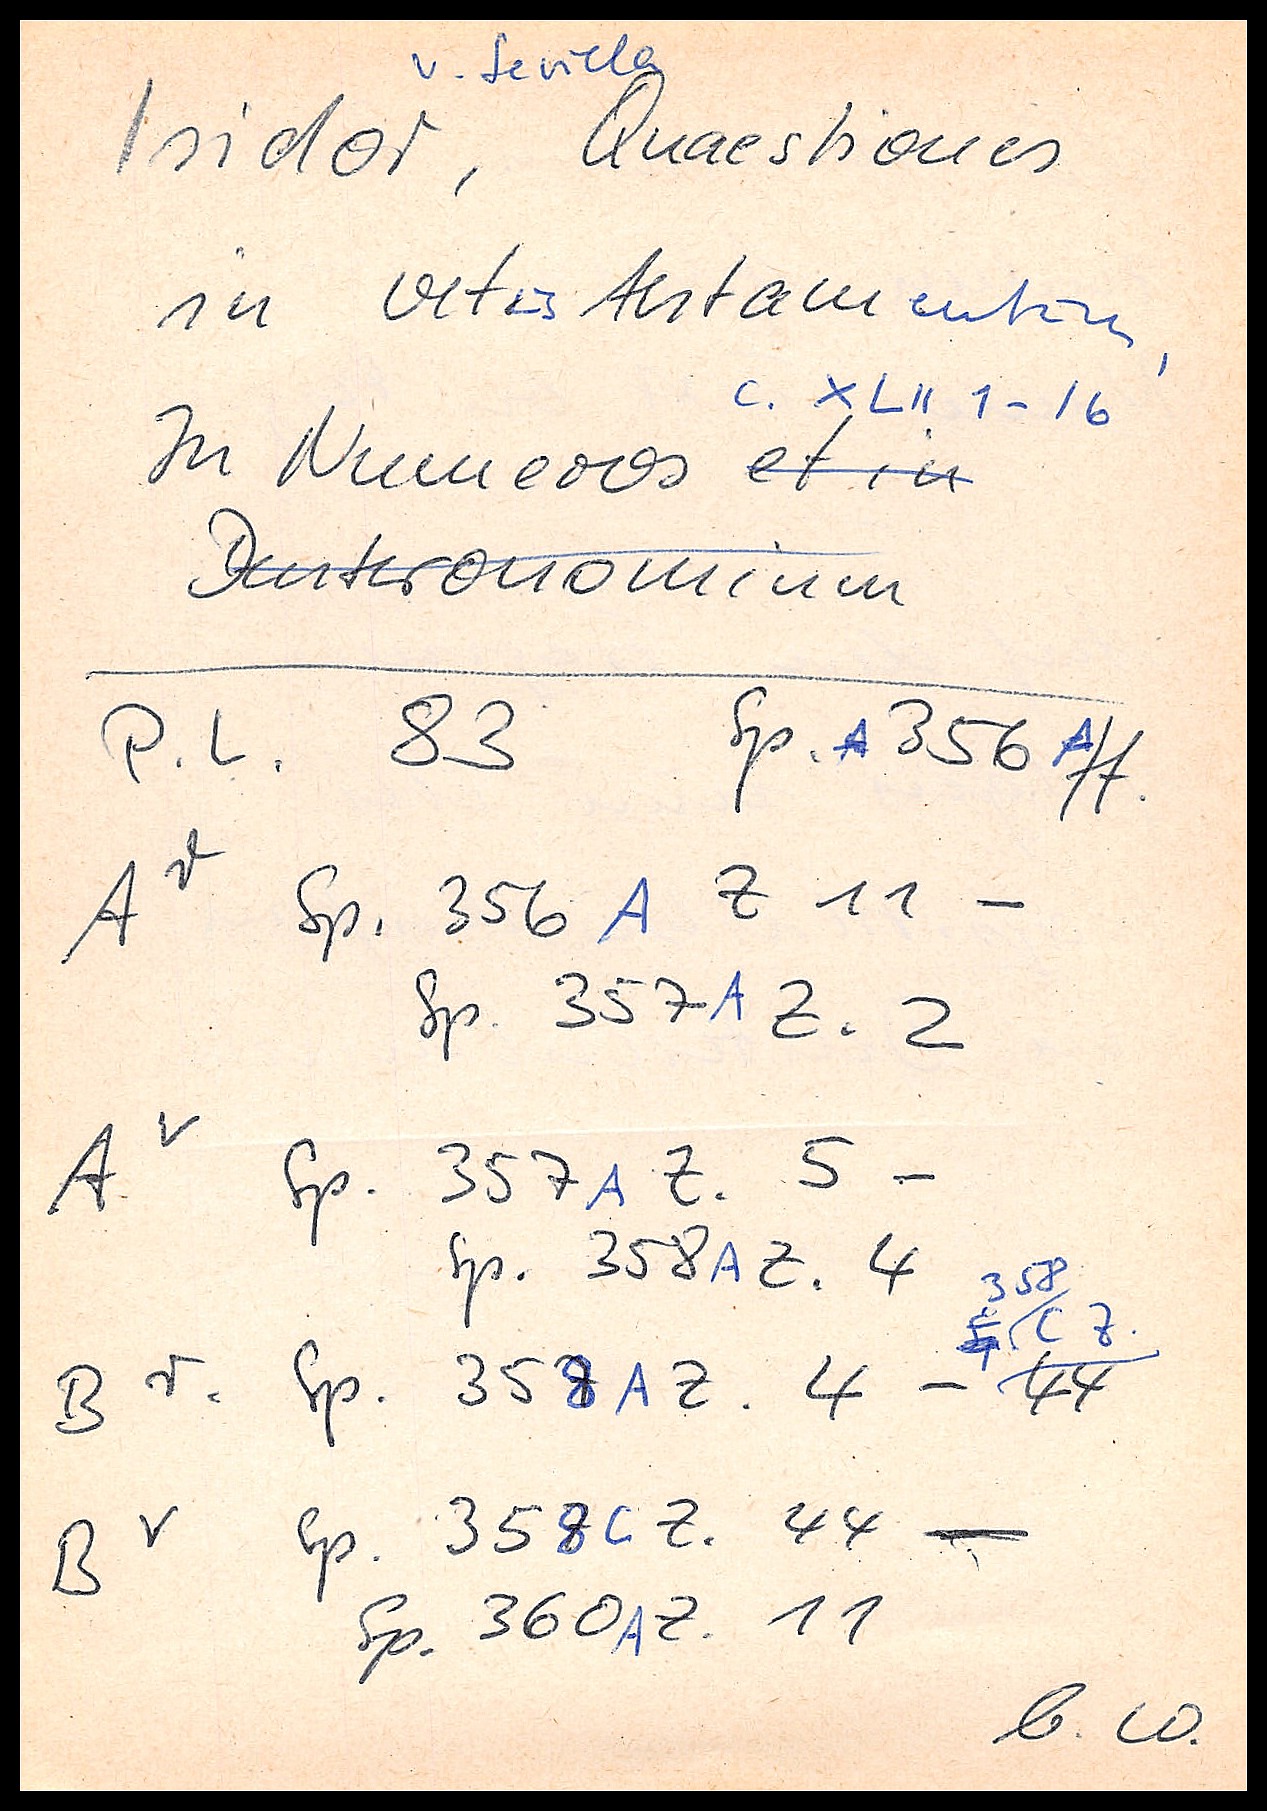 v. Sevilla
Isidor, Quaestiones
in vetus testamentum,
c. XLII 1-16
In Numeros et in
Deuteronomium
P.L. 83 Sp. A 356 A ff.
A r Sp. 356 A Z 11 –
Sp. 357 A Z. 2
A v Sp. 357 A Z. 5 –
Sp. 358 A Z. 4
358
C Z.
B r. Sp. 358 A Z. 4 – 44
B v Sp. 358 C Z. 44 —
Sp. 360 A Z. 11
C. W.